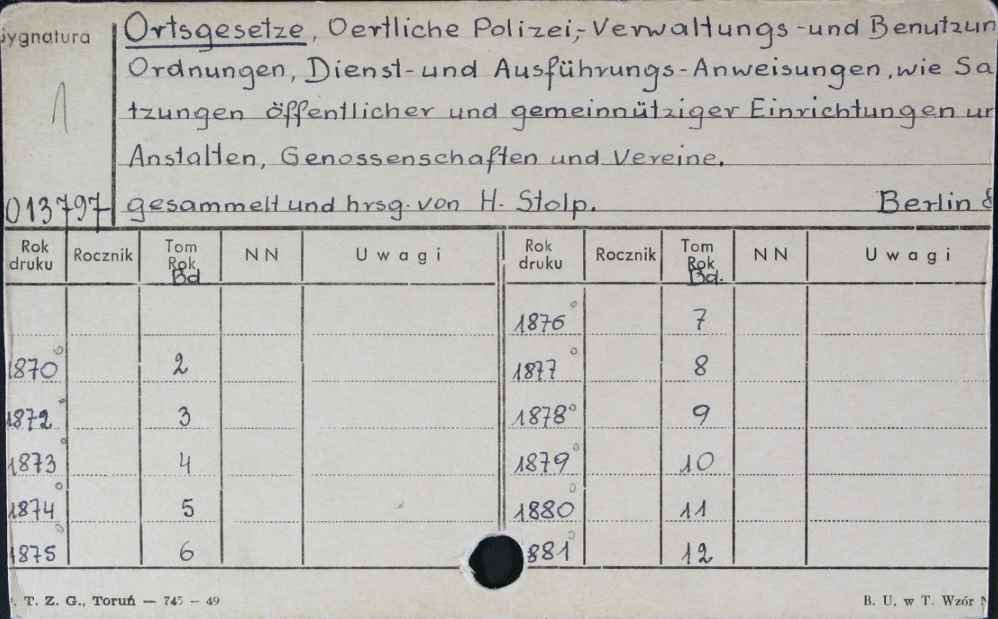 ygnatura
1
013797
Ortsgesetze, Oertliche Polizei,-Verwaltungs-und Benutzun
Ordnungen, Dienst-und Ausführungs-Anweisungen, wie Sa
tzungen öffentlicher und gemeinnütziger Einrichtungen un
Anstalten, Genossenschaften und Vereine.
gesammelt und hrsg. von H. Stolp. Berlin
Rok druku Rocznik Tom Rok Bd NN Uwagi Rok druku Rocznik Tom Rok Bd. NN Uwagi
1876 7
1870 2 1877 8
1872 3 1878 9
1873 4 1879 10
1874 5 1880 11
1875 6 881 12
T. Z. G., Toruń — 745 — 49 B. U. w T. Wzór